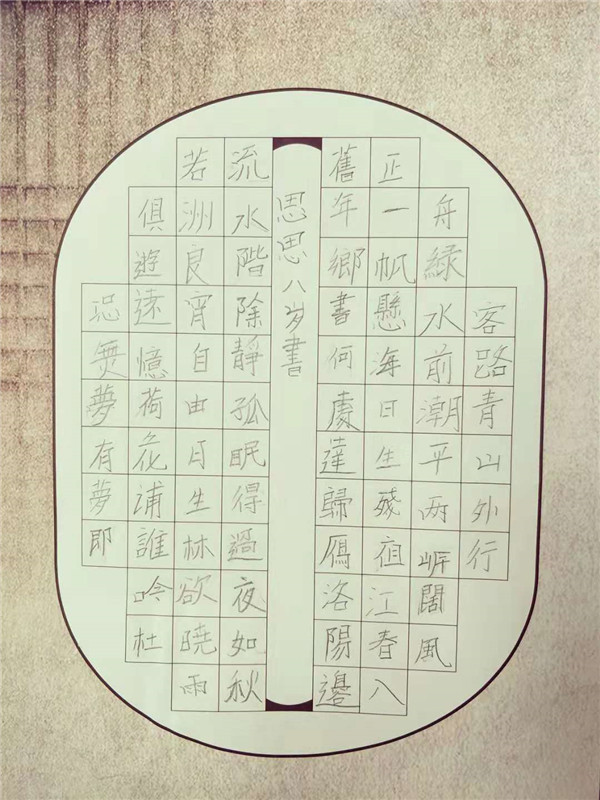 客路青山外行
舟綠水前潮平两岍闊風
正一帆懸海日生殘宿江春八
舊年鄉書何處達歸鴈洛陽邊
思思八岁書
流水階除靜孤眠得過夜如秋
若洲良宵自由月生林欲曉雨
俱遊遠憶荷花浦誰吟杜
恐無夢有夢即